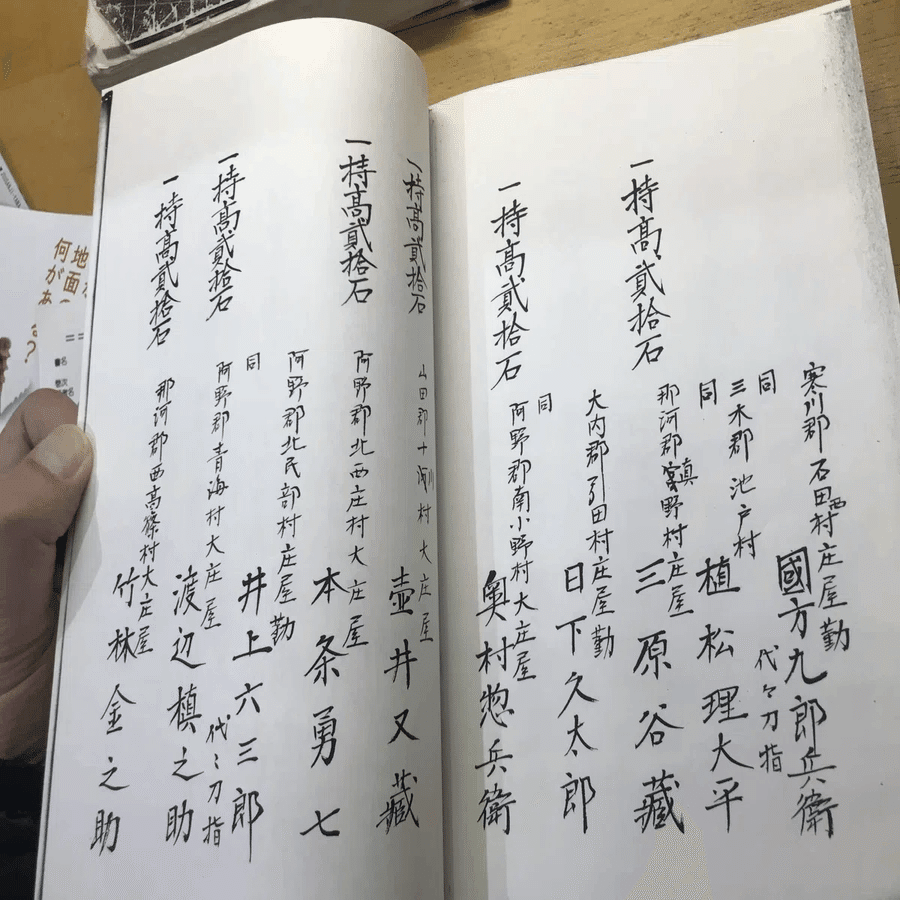 寒川郡石田西村庄屋勤
國方九郎兵衛
同　代々刀指
三木郡池戸村
植松理大平
一持高貳拾石　同
那河郡真野村庄屋
三原谷藏
大内郡引田村庄屋勤
日下久太郎
一持高貳拾石　同
阿野郡南小野村大庄屋
奥村惣兵衛
一持高貳拾石　山田郡十河村大庄屋
壺井又藏
一持高貳拾石　阿野郡北西庄村大庄屋
本条勇七
阿野郡北民部村庄屋勤
井上六三郎
一持高貳拾石　同　代〻刀指
阿野郡青海村大庄屋
渡辺槙之助
一持高貳拾石　那河郡西高篠村大庄屋
竹林金之助
地面
何が
書名
巻次